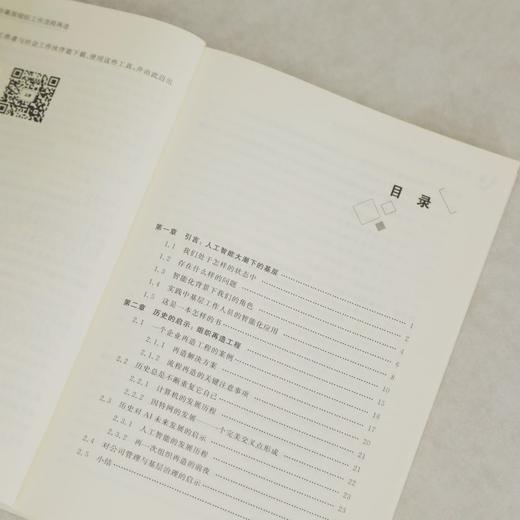 基层组织工作流程再造
工作者与社会工作伙伴能下载、使用这些工具，并由此启出
目 录
第一章 引言：人工智能大潮下的基层 1
1.1 我们处于怎样的状态中 2
1.2 存在什么样的问题 4
1.3 智能化背景下我们的角色 6
1.4 实践中基层工作人员的智能化应用 8
1.5 这是一本怎样的书 10
第二章 历史的启示：组织再造工程
2.1 一个企业再造工程的案例
2.1.1 再造解决方案
2.1.2 流程再造的关键注意事项
2.2 历史总是不断重复它自己
2.2.1 计算机的发展历程
2.2.2 因特网的发展——一个完美交叉点形成
2.3 历史对AI未来发展的启示
2.3.1 人工智能的发展历程
2.3.2 再一次组织再造的前夜
2.4 对公司管理与基层治理的启示
2.5 小结